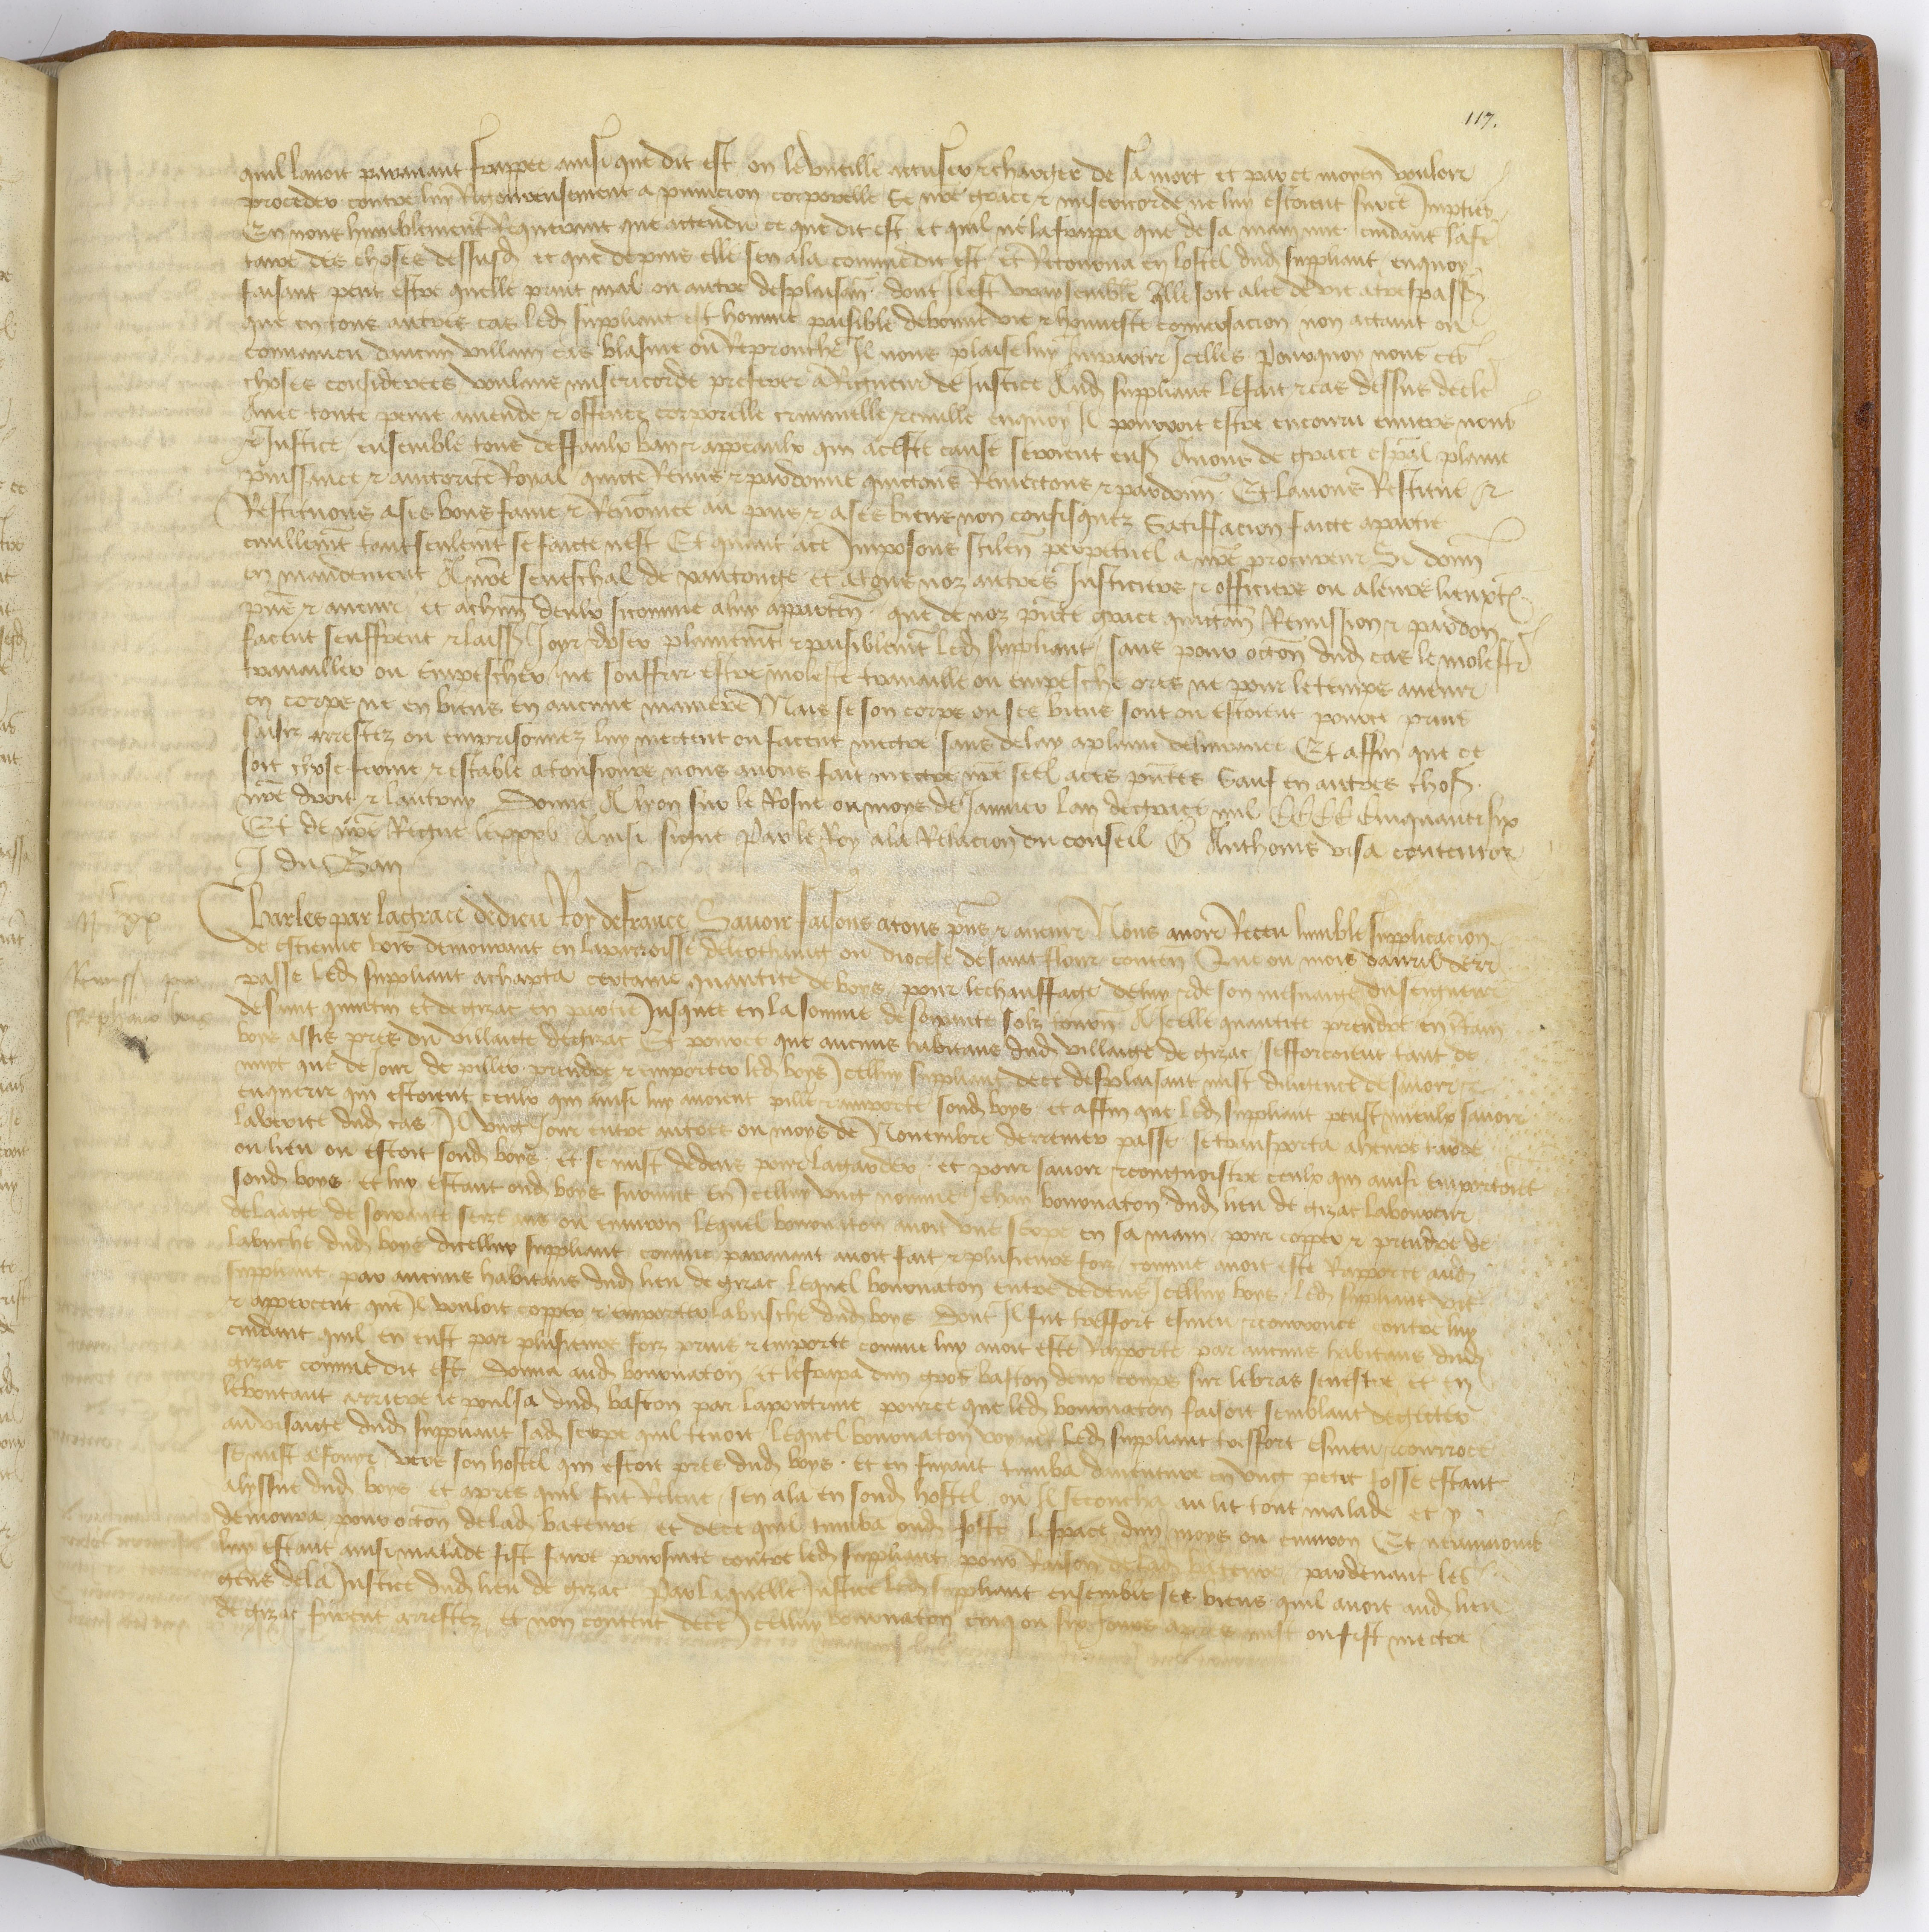 117.
quil lavoit paravant frappee ainsi que dit est on le vueille accuser et charger de sa mort et par ce moyen vouloir
proceder contre luy Rigoureusement a punicion corporelle Se nre grace et misericorde ne luy estoient sur ce Imparties
En nous humblement Requerant que actendu ce que dit est et quil ne la frappa que de sa main nue cuidant la fe
taire des choses dessusd et que depuis elle sen ala comme dit est et Retourna en lostel dud suppliant en quoy
faisant peut estre quelle print mal ou autre desplaisan dont Il est vraysemble quelle soit alee de vie a trespassem
que en tous autres cas led suppliant est homme paisible de bonne vie et honneste conversacion non actaint ou
convaincu daucun villain cas blasme ou Reprouche Il nous plaise luy Impartir Icelles Pourquoy nous ces
choses considerees voulans misericorde preferer a Rigueur de Justice Aud suppliant le fait et cas dessus decle
Avec toute peine amende et offence corporelle criminelle et civille en quoy Il pourroit estre encouru envers nous
et Justice ensemble tous deffaulx ban et appeaulx qui a ceste cause seroient ens Avons de grace espal plaine
puissance et auctorite Royal quicte Remis et pardonne quictons Remectons et pardonn Et lavons Restitue et
Restituons a ses bons fame et Renommee au pais et a ses biens non confisquez Satisfacion faicte a partie
civillemt tout seulemt se faicte nest Et quant a ce Imposons scilen perpetuel a nre procureur Si donn
en mandement Au nre seneschal de xantonge et a tous noz autres Justiciers et officiers ou a leurs lieuxten
pns et avenir et a chun deulx si comme a luy appartien que de noz pnte grace quictan Remission et pardon
facent seuffrent et laissn Joyr et user plainemt et paisiblemt led suppliant sans pour occon dud cas le molester
travailler ou empescher ne souffrir estre moleste travaille ou empesche ores ne pour le temps avenir
en corps ne en biens en aucune maniere Mais se son corps ou ses biens sont ou estoient pource prins
saisiz arrestez ou emprisonnez luy mectent ou facent mectre sans delay a plaine delivrance Et affin que ce
soit chose ferme et estable a tousjours nous avons fait mectre nre seel a ces pntes Sauf en autres chos
nre droit et lautruy Donne A lyon sur le Rosne ou moys de Janvier lan de grace mil CCCC cinquante six
Et de nre Regne le xxxv Ainsi signe Par le Roy a la Relacion du conseil G Anthonis visa contentor
J du Ban
Charles par la grace de dieu Roy de france Savoir faisons a tous pns et avenir Nous avoir Receu lumble supplicacion
de estienne bors demourant en la parroisse de en diocese de saint flour conten Que ou mois davril derr
passe led suppliant achapta certaine quantite de boys pour le chauffaige de luy et de son mesnaige du seigneur
de saint quintin et de gizac en partie Jusques en la somme de soixante solz tourn A Icelle quantite prendre en certain
boys assis pres du villaige de gizac Et pource que aucuns habitans dud villaige de gizac sefforcoient tant de
nuyt que de Jour de piller prendre et emporter led boys Icelluy suppliant de ce desplaisant mist diligence de savoir et
enquerir qui estoient ceulx qui ainsi luy avoient pille et emporte sond boys et affin que led suppliant peust mieulx savoir
la verite dud cas Il ung Jour entre autres ou moys de Novembre derrenier passe se transporta a heure tarde
ou lieu ou estoit sond boys et se mist dedens pour la garder et pour savoir et congnoistre ceulx qui ainsi emportoient
sond boys et luy estant oud boys survint en Icelluy ung nomme Jehan bouonaton dud lieu de gizac laboureur
de laage de soixante seize ans ou environ lequel bouonaton avoit une serpe en sa main pour copper et prendre de
la busche dud boys dicelluy suppliant comme paravant avoit fait et plusieurs foiz comme avoit este Rapporte aud
suppliant par aucuns habitans dud lieu de gizac lequel bouonaton entre dedens Icelluy boys led suppliant vit
et appercent que Il vouloit copper et emporter la busche dud boys Dont Il fut tresfort esmeu et courrouce contre luy
cuidant quil en eust par plusieurs foiz prins et emporte comme luy avoit este Rapporte par aucuns habitans dud
gizac comme dit est Donna aud bouonaton et le frapa dun gros baston deux coups sur le bras senestre et en
le boutant arriere le poulsa dud baston par la poictrine pource que led bouonaton faisoit semblant de gecter
au visaige dud suppliant sad serpe quil tenoit lequel bouonaton voyant led suppliant tresfort esmeu et courroce
se mist a fouyr vers son hostel qui estoit pres dud boys et en fuyant tumba daventure en ung petit fosse estant
a lyssue dud boys et apres quil fut Releve sen ala en sond hostel ou Il se coucha au lit tout malade et y
demoura pour occon de lad bateure et de ce quil tumba oud fosse lespace dun moys ou environ Et neantmoins
luy estant ainsi malade fist faire poursuite contre led suppliant pour Raison de lad bateure pardevant les
gens de la Justice dud lieu de gizac Par laquelle Justice led suppliant ensemble ses biens quil avoit aud lieu
de gizac furent arrestez et non content de ce Icelluy bouonaton cinq ou six jours apres mist ou fist mectre
Remiss pro
Stephano bors